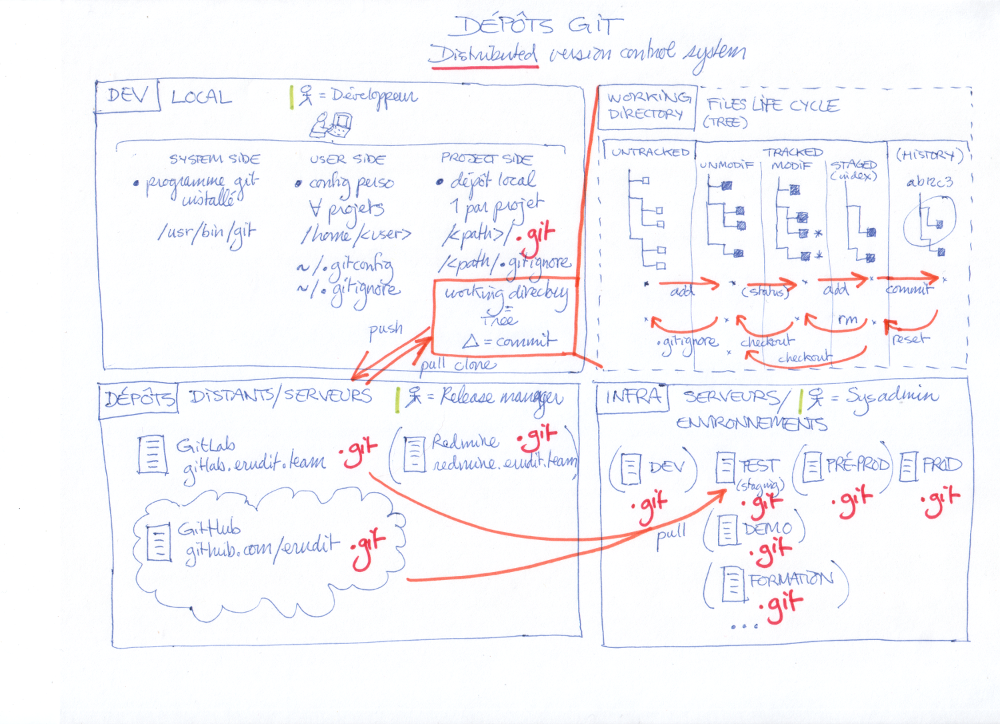 DÉPÔTS GIT
Distributed version control system
DEV LOCAL = Développeur
SYSTEM SIDE
• programme git
installé
/usr/bin/git
USER SIDE
• config perso
∀ projets
/home/<user>
~/.gitconfig
~/.gitignore
PROJECT SIDE
• dépôt local
1 par projet
/<path>/.git
/<path/.gitignore
working directory
=
Tree
△ = commit
push
pull clone
WORKING
DIRECTORY
FILES LIFE CYCLE
(TREE)
UNTRACKED
UNMODIF
TRACKED
MODIF
STAGED
(index)
(HISTORY)
ab12c3
add
(status)
add
commit
.gitignore
checkout
rm
reset
checkout
DÉPÔTS DISTANTS/SERVEURS = Release manager
GitLab
gitlab.erudit.team .git
(Redmine .git
redmine.erudit.team)
GitHub
github.com/erudit .git
pull
INFRA SERVEURS/ = Sysadmin
ENVIRONNEMENTS
(DEV)
.git
TEST
(staging)
.git
(PRÉ-PROD)
.git
PROD
.git
(DEMO)
.git
(FORMATION)
.git
...